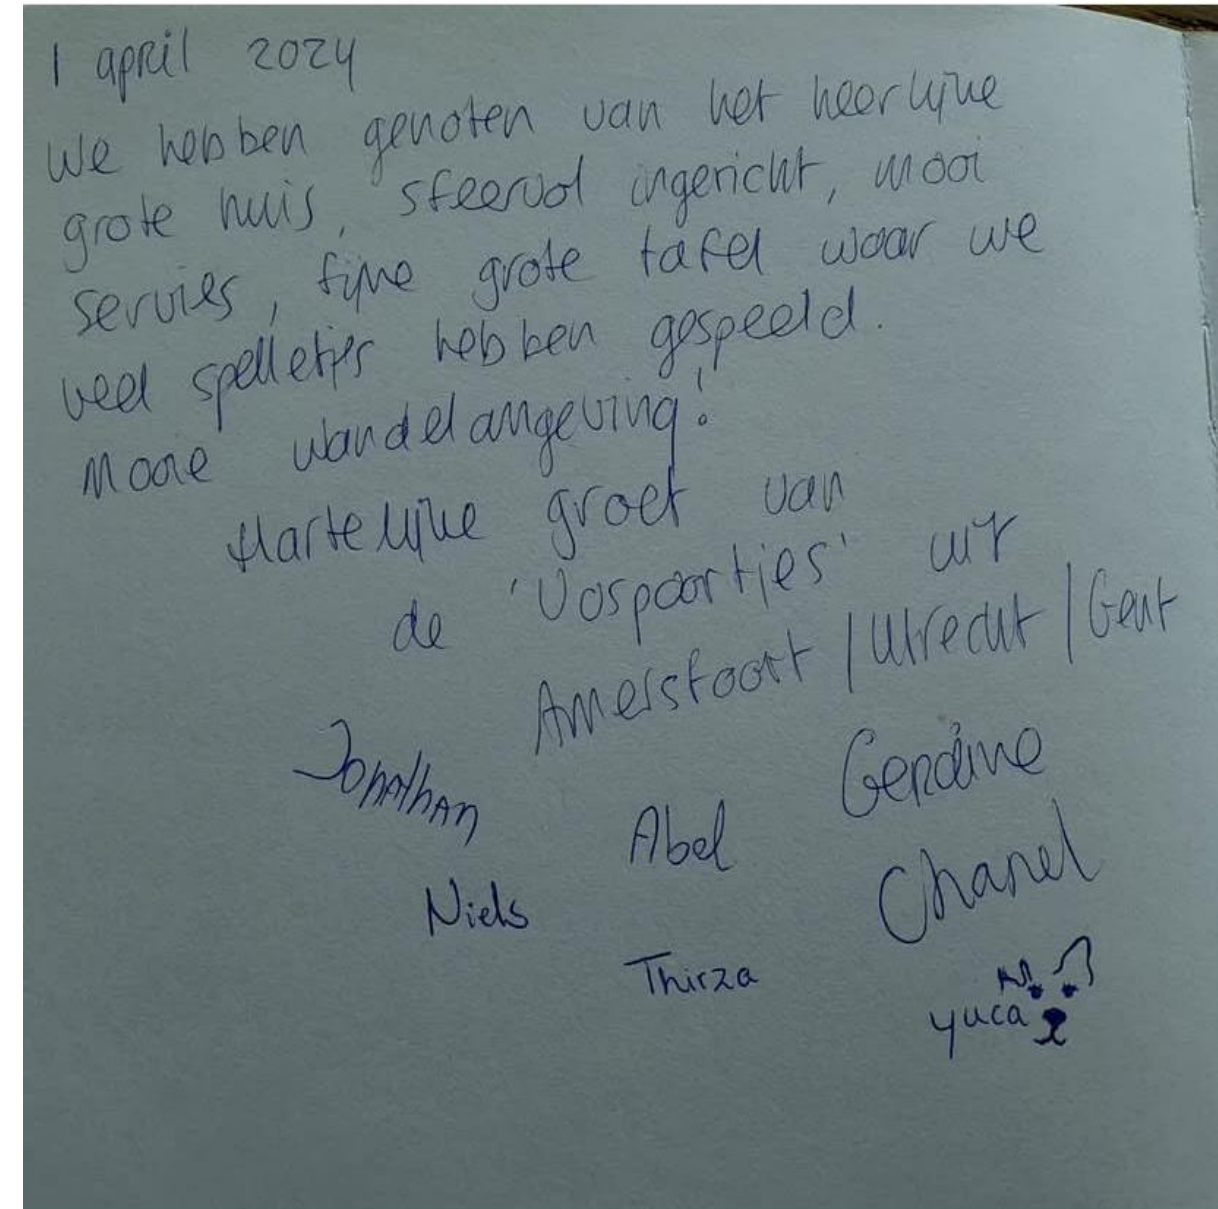 1 april 2024
We hebben genoten van het heerlijke
grote huis, sfeervol ingericht, mooi
servies, fijne grote tafel waar we
veel spelletjes hebben gespeeld.
Mooie wandelomgeving!
Hartelijke groet van
de 'Vospoortjes' uit
Amersfoort / Utrecht / Gent
Jonathan Abel Gerdine
Niels Chanel
Thirza
yuca